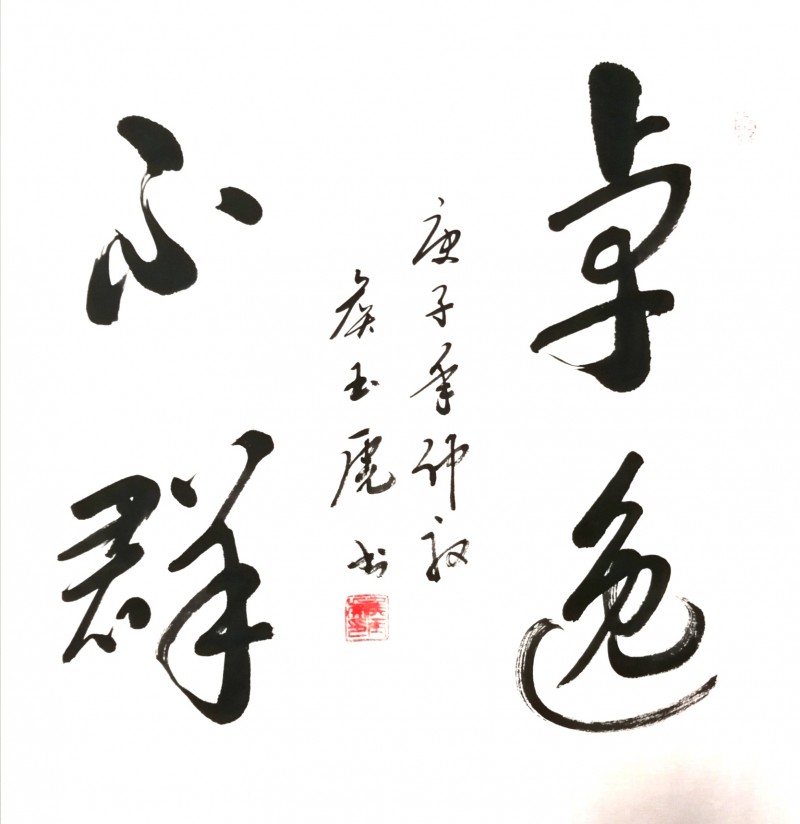 卓逸
不群
庚子年仲秋
侯玉虎书